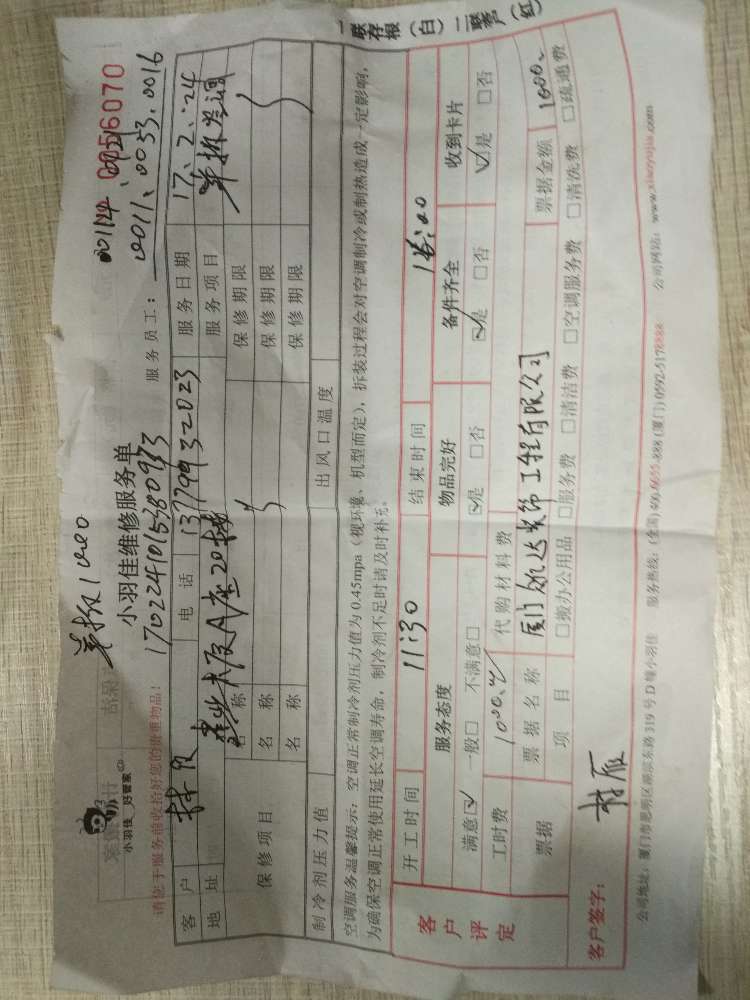 一联存根（白）二联客户（红）
小羽佳 好管家
小羽佳维修服务单
0056070
1702241015380933
请您于服务前收拾好您的贵重物品！
服务员工：
0011、0053、0016
客户
电话 13799332023 服务日期 17、2、24
地址 A座20楼 服务项目 单拆空调
保修项目
名称 保修期限
名称 保修期限
名称 保修期限
制冷剂压力值 出风口温度
空调服务温馨提示：空调正常制冷剂压力值为0.45mpa（视环境、机型而定），拆装过程会对空调制冷或制热造成一定影响，
为确保空调正常使用延长空调寿命，制冷剂不足时请及时补充。
客户评定
开工时间 11:30 结束时间
服务态度 物品完好 备件齐全 收到卡片
满意☑ 一般□ 不满意□ ☑是 □否 ☑是 □否 ☑是 □否
工时费 代购材料费
票据 票据名称 装饰工程有限公司 票据金额 1000、
项目 □搬办公用品 □服务费 □清洁费 □空调服务费 □清洗费 □疏通费
客户签字：
公司地址：厦门市思明区湖滨东路319号D幢小羽佳 服务热线：(全国)400-6655-888 (厦门)0592-5178888 公司网站：www.xiaoyujia.com